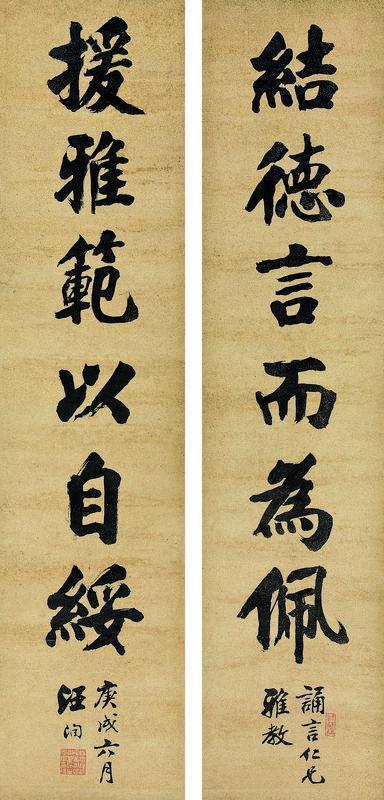 結德言而為佩
誦言仁兄
雅教
援雅範以自綏
庚戌六月
汪洵